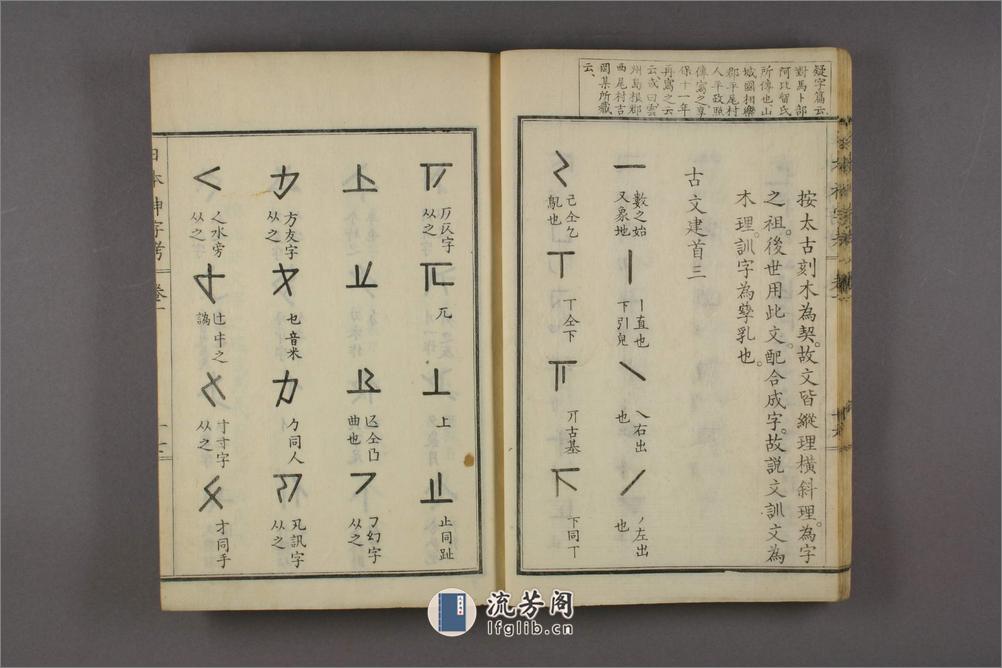 疑字篇云
對馬卜部
阿比留氏
所傳也山
城國相樂
郡平尾村
人平政照
傳寫之享
保十一年
再寫之云
云或曰雲
州島根郡
西尾村古
岡某所藏
云
按太古刻木為契。故文皆縱理橫斜理。為字
之祖。後世用此文配合成字。故說文訓文為
木理。訓字為孳乳也。
古文建首三
一 數之始又象地
丨 丨直也下引皃
㇏ ㇏右出也
丿 丿左出也
己仝乞亂也
丅 丅仝下
丌 丌古基
下同丅
𠂆仄字从之
兀
上
止同趾
凵仝凸曲也
㇆幻字从之
方友字从之
也音米
力 ㄉ同人
卂訊字从之
く水旁从之
寸寸字从之
才同手
日本神字考 卷一
流芳阁
lfglib.cn